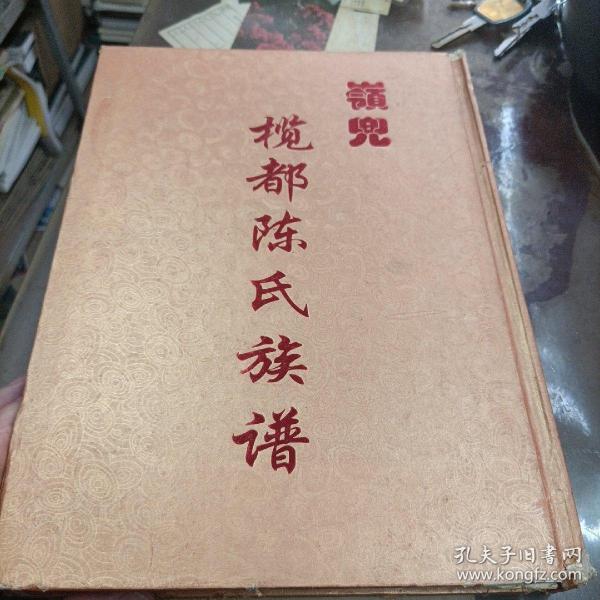 嶺兜
榄都陈氏族谱
孔夫子旧书网
www.kongfz.com